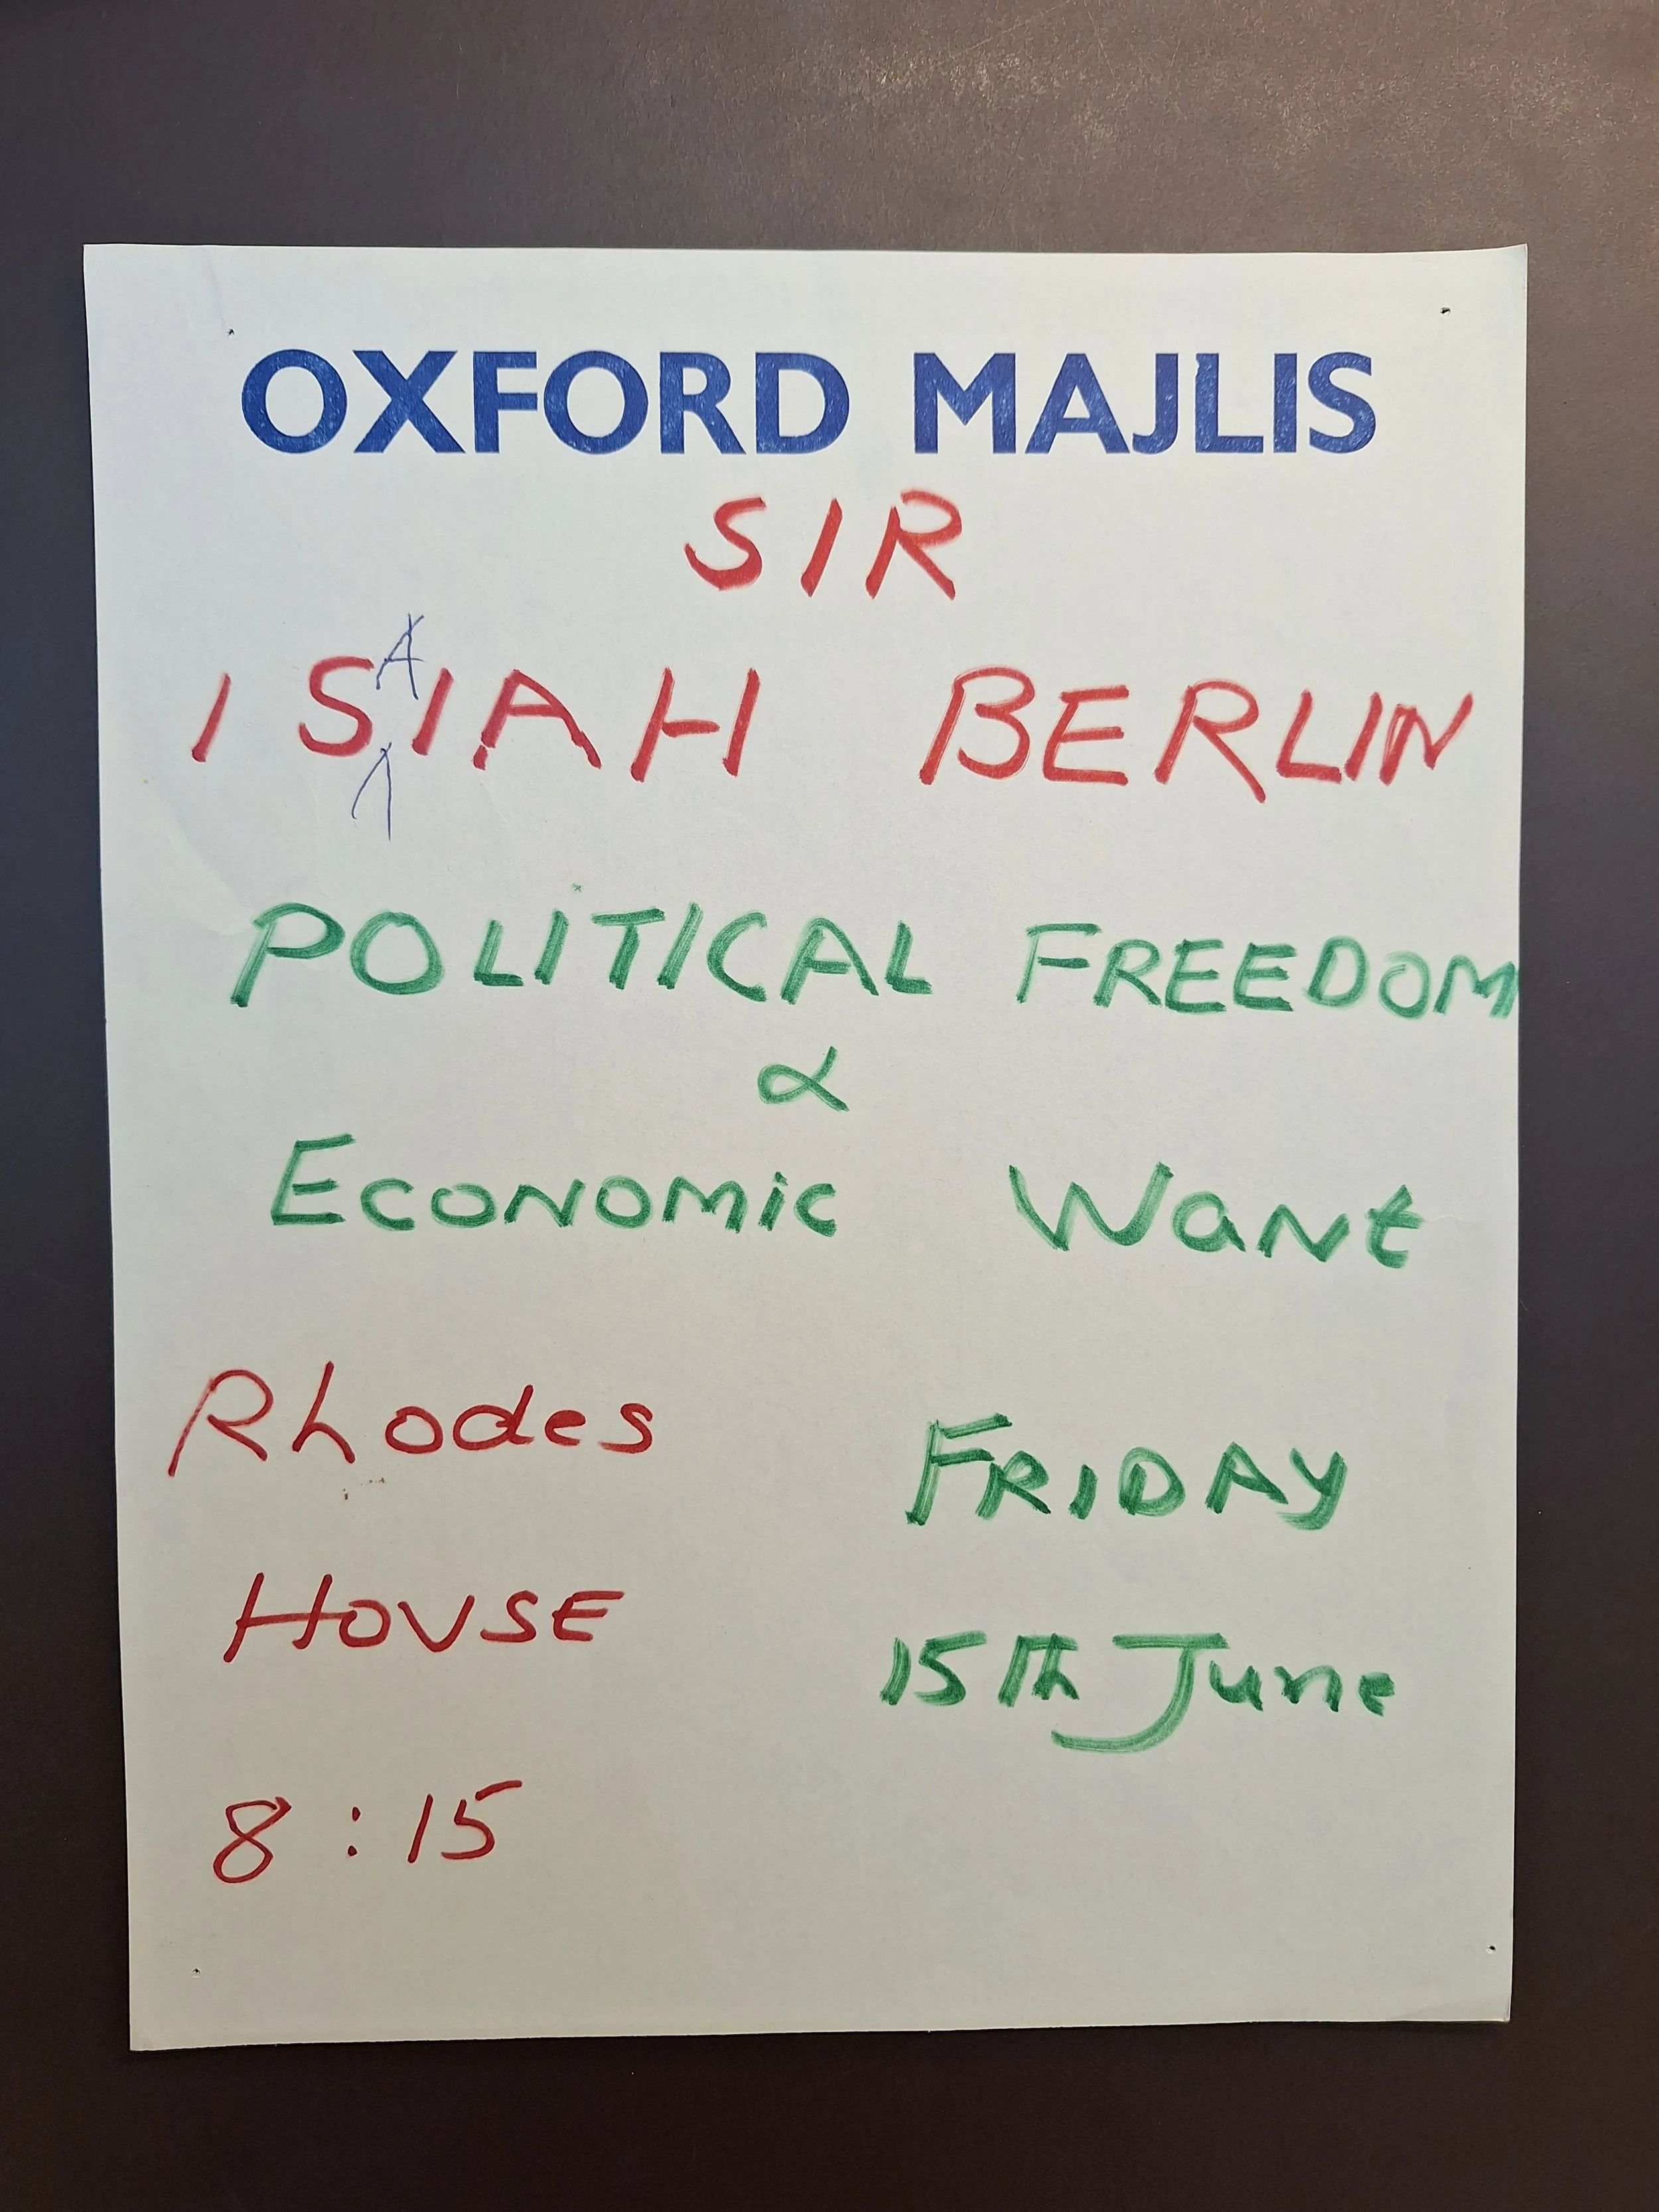 OXFORD MAJLIS
SIR
ISAIAH BERLIN
POLITICAL FREEDOM
&
ECONOMIC WANT
Rhodes
HOUSE
8:15
FRIDAY
15th June